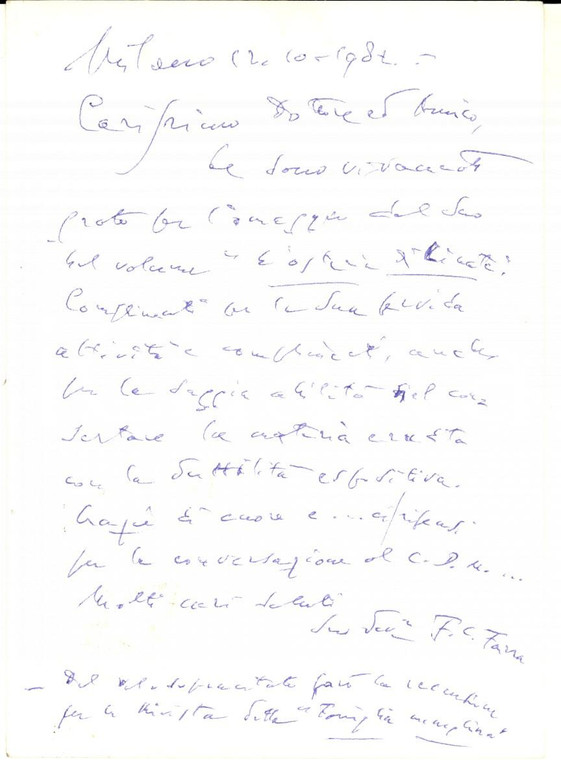 Milano 12.10.1982. -
Carissimo Dottore ed Amico,
Le sono vivamente
grato per l'omaggio del Suo
bel volume "L'osteria
Complimenti per la Sua fervida
attività e complimenti, anche
per la saggia abilità nel con
sertare la materia erudita
con la sottilità espositiva.
Grazie di cuore e ...
per la conversazione al C.D.M....
Molti cari saluti
Suo F.C. Farra
- Del vol. sopracitato farò la recensione
per la Rivista della "Famiglia meneghina"